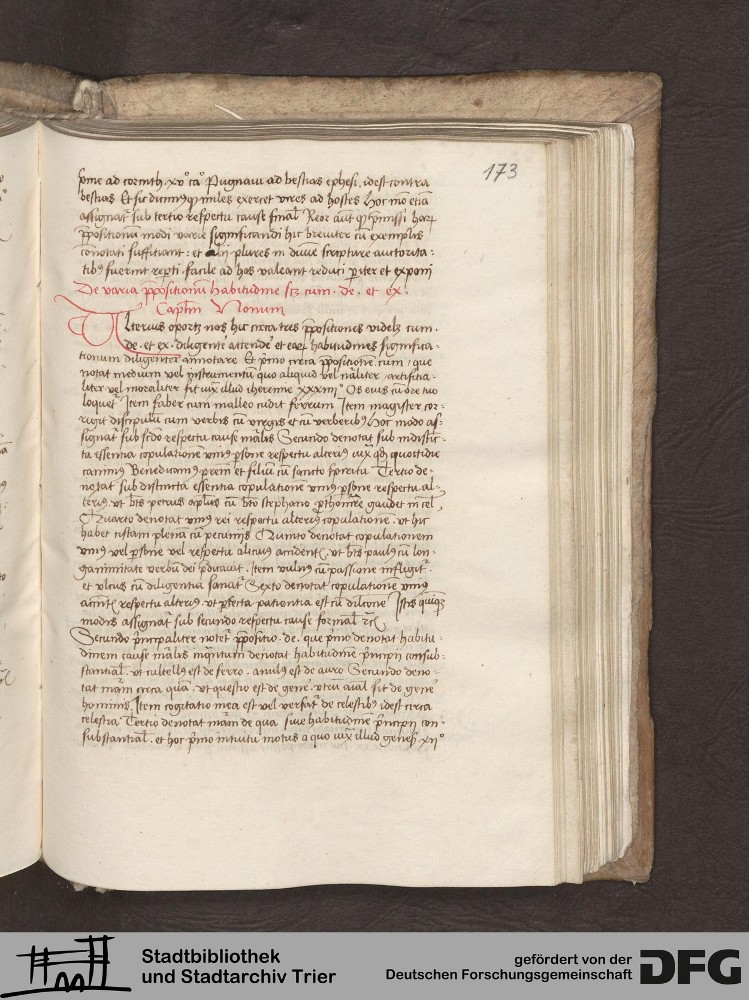 173
pme ad corinth. xvº caº Pugnaui ad bestias ephesi. idest contra
bestias Et sic dimus miles exercet vires ad hostes Hoc etiā
assignat᷑ sub tertio respectu cause final Reor aūt q p̄missi haꝝ
p̄positionum modi varie significandi hic breuiter cū exemplis
conotati sufficiant : et alij plures in diuine scripture autorita-
tibꝰ fuerint rep̄ti facile ad hos valeant reduci pariter et exponi
De varia p̄positionū habitudine scz cum . de . et ex .
Capłm Nonum
Vlterius oportz nos hic circa tres p̄positiones videlz cum .
de . et ex . diligente attende et eaꝝ habitudines significa-
tionum diligenter annotare Et p̄mo circa p̄positionē cum : que
notat medium vel instrumentū quo aliquid vel nāliter artificia-
liter vel moraliter fit iux illud iheremie xxxiiijº Os eius cū ore tuo
loquet᷑ Item faber cum malleo cudit ferrum Item magister cor-
rigit discipulū cum verbis cū virgis et cū verberibꝰ Hoc modo as-
signat᷑ sub scdo respectu cause mālis Secundo denotat sub indistīc-
ta essentia copulationē vniꝰ psone respectu alteriꝰ iux qd quottidie
canimꝰ Benedicamꝰ prem et filiū cū sancto spiritu Tertio de-
notat sub distincta essentia copulationē vniꝰ psone respectu al-
teriꝰ . vt bts petrus aplus cū bto stephano gaudet in cel
Quarto denotat vniꝰ rei respectu alteriꝰ copulationē . vt hic
habet cistam plenā cū pecunijs Quinto denotat copulationem
vniꝰ vel psone vel respectu alicuiꝰ accident . vt bts paulꝰ cū lon-
ganimitate verbū dei p̄dicauit . Item vulnꝰ cū passione infligit᷑
et vlcus cū diligentia sanat᷑ Sexto denotat copulationē vniꝰ
accnt respectu alteriꝰ . vt pfecta patientia est cū dilcone Istis quiqꝫ
modis assignat᷑ sub secundo respectu cause formal ꝛc
Secundo p̄ncipaliter notet᷑ p̄positio . de . que p̄mo denotat habitu-
dinem cause mālis inqntum denotat habitudinē p̄ncipij consub-
stantial . vt cultellꝰ est de ferro . anulꝰ est de auro Secundo deno-
tat mām circa quā . vt questio est de gene . vtrū aīal sit de gene
hominis . Item cogitatio mea est vel versat᷑ de celestibꝰ idest circa
celestia Tertio denotat mām de qua siue habitudinē p̄ncipij con-
substantial . et hoc p̄mo intuitu motus a quo iux illud genes xijº
Stadtbibliothek
und Stadtarchiv Trier
gefördert von der
Deutschen Forschungsgemeinschaft
DFG